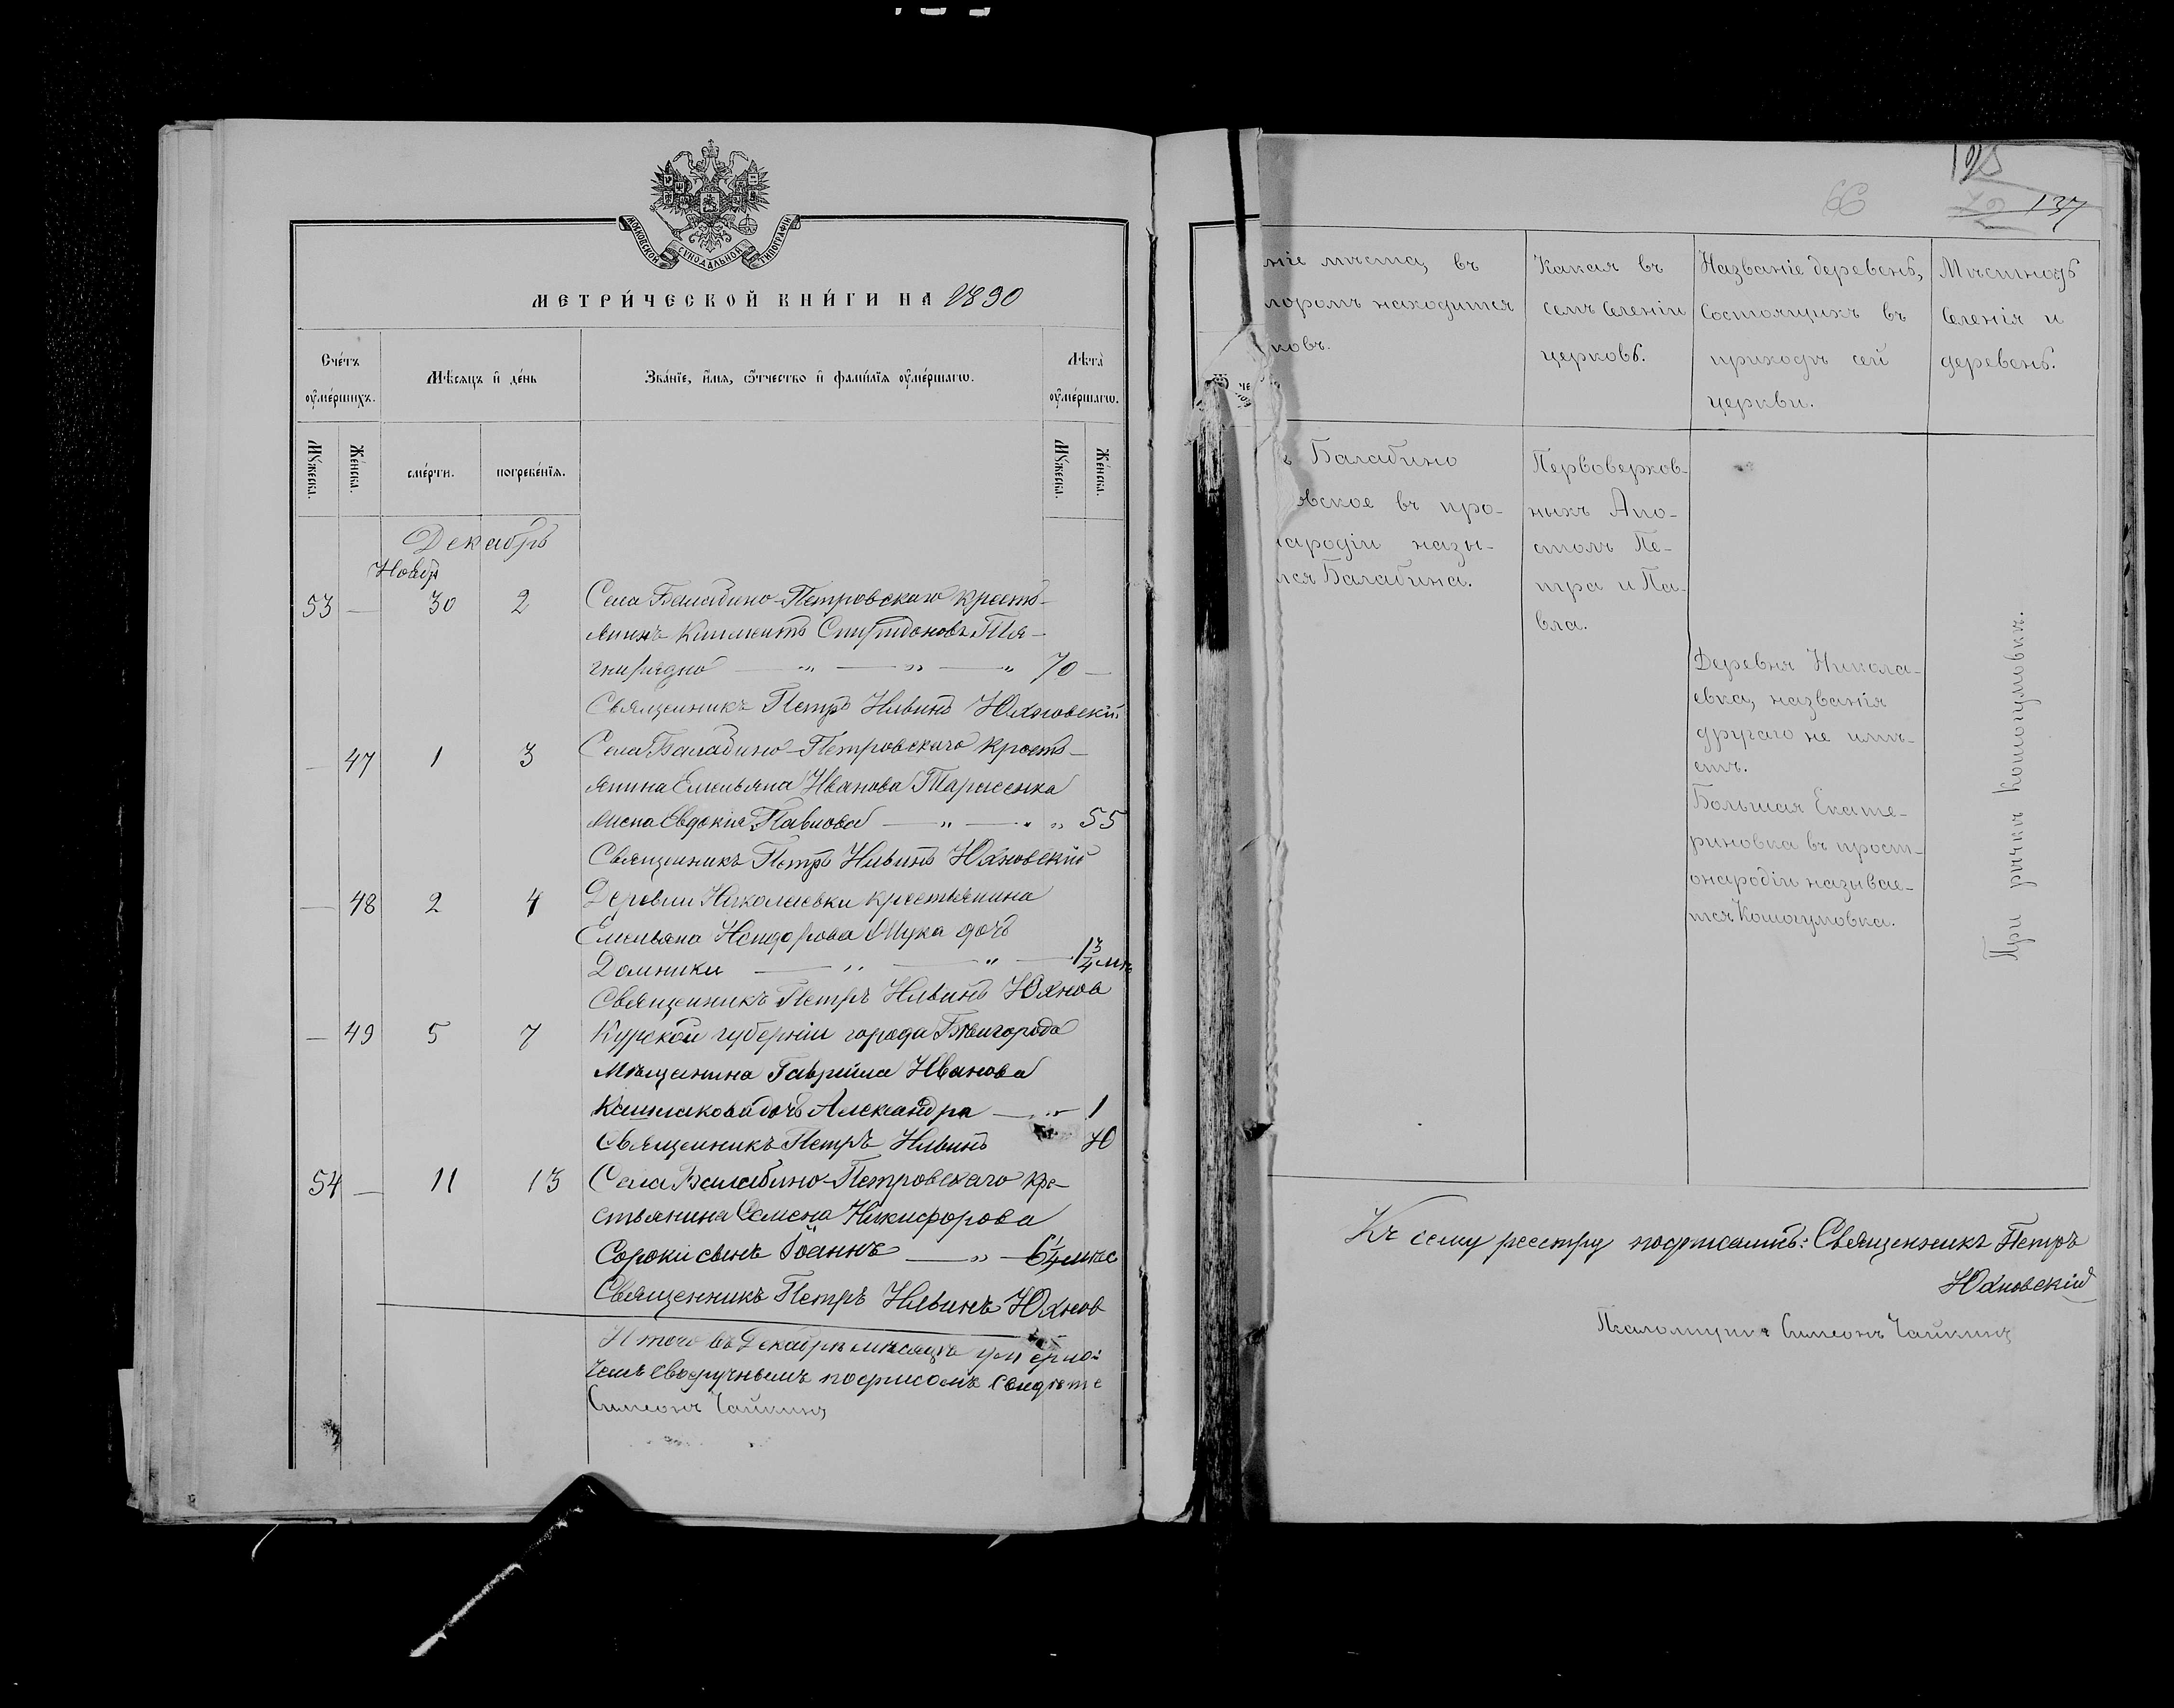 МОСКОВСКОЙ СУНОДАЛЬНОЙ ТИПОГРАФІИ
МЕТРИ́ЧЕСКОЙ КНИ́ГИ НА 1890
Сче́тъ ѹме́ршихъ.
Мѣ́сяцъ и҆ де́нь
Зва́нїе, и҆́мя, ѻ҆́тчество и҆ фами́лїя ѹме́ршагѡ.
Лѣта̀ ѹме́ршагѡ.
Мꙋ́жеска.
Же́нска.
сме́рти.
погребе́нїя.
Мꙋ́жеска.
Же́нска.
Декабрь
Ноябр
53 — 30 2 Села Балабино-Петровскаго кресть-
янинъ Климентъ Спиридоновъ Тя-
гнирядно — „ — „ — „ 70 —
Священникъ Петръ Ильинъ Юхновскій
— 47 1 3 Села Балабино-Петровскаго кресть-
янина Емельяна Иванова Тарасенка
жена Евдокія Павлова — „ — „ „ 55
Священникъ Петръ Ильинъ Юхновскій
— 48 2 4 Деревни Николаевки крестьянина
Емельяна дочь
Домники — „ — „ — 1 3/4 мѣ
Священникъ Петръ Ильинъ Юхнов
— 49 5 7 Курской губерніи города Бѣлгорода
Мѣщанина Гавріила Иванова
дочь Александра — „ — 1
Священникъ Петръ Ильинъ Ю
54 — 11 13 Села Балабино-Петровскаго кре-
стьянина Семена Никифорова
Сороки сынъ Іоаннъ — „ — 6 1/4 мѣс
Священникъ Петръ Ильинъ Юхнов
Итого въ Декабрѣ мѣсяцѣ умерло:
чемъ своеручнымъ подписомъ свидѣте
Симеонъ Чайкинъ
137
ніе мѣста, въ
торомъ находится
ковь.
Какая въ
семъ селеніи
церковь.
Названіе деревень,
состоящихъ въ
приходѣ сей
церкви.
Мѣстность
селенія и
деревень.
Балабино
овское въ про-
народіи назы-
тся Балабина.
Первоверхов-
ныхъ Апо-
столъ Пе-
тра и Па-
вла.
Деревня Никола-
евка, названія
другаго не имѣ-
етъ.
Большая Екате-
риновка въ прост-
онародіи называе-
тся Кошугумовка.
При рѣчкѣ Кошугумовкѣ.
Къ сему реестру подписался: Священникъ Петръ
Юхновскій
Псаломщикъ Симеонъ Чайкинъ